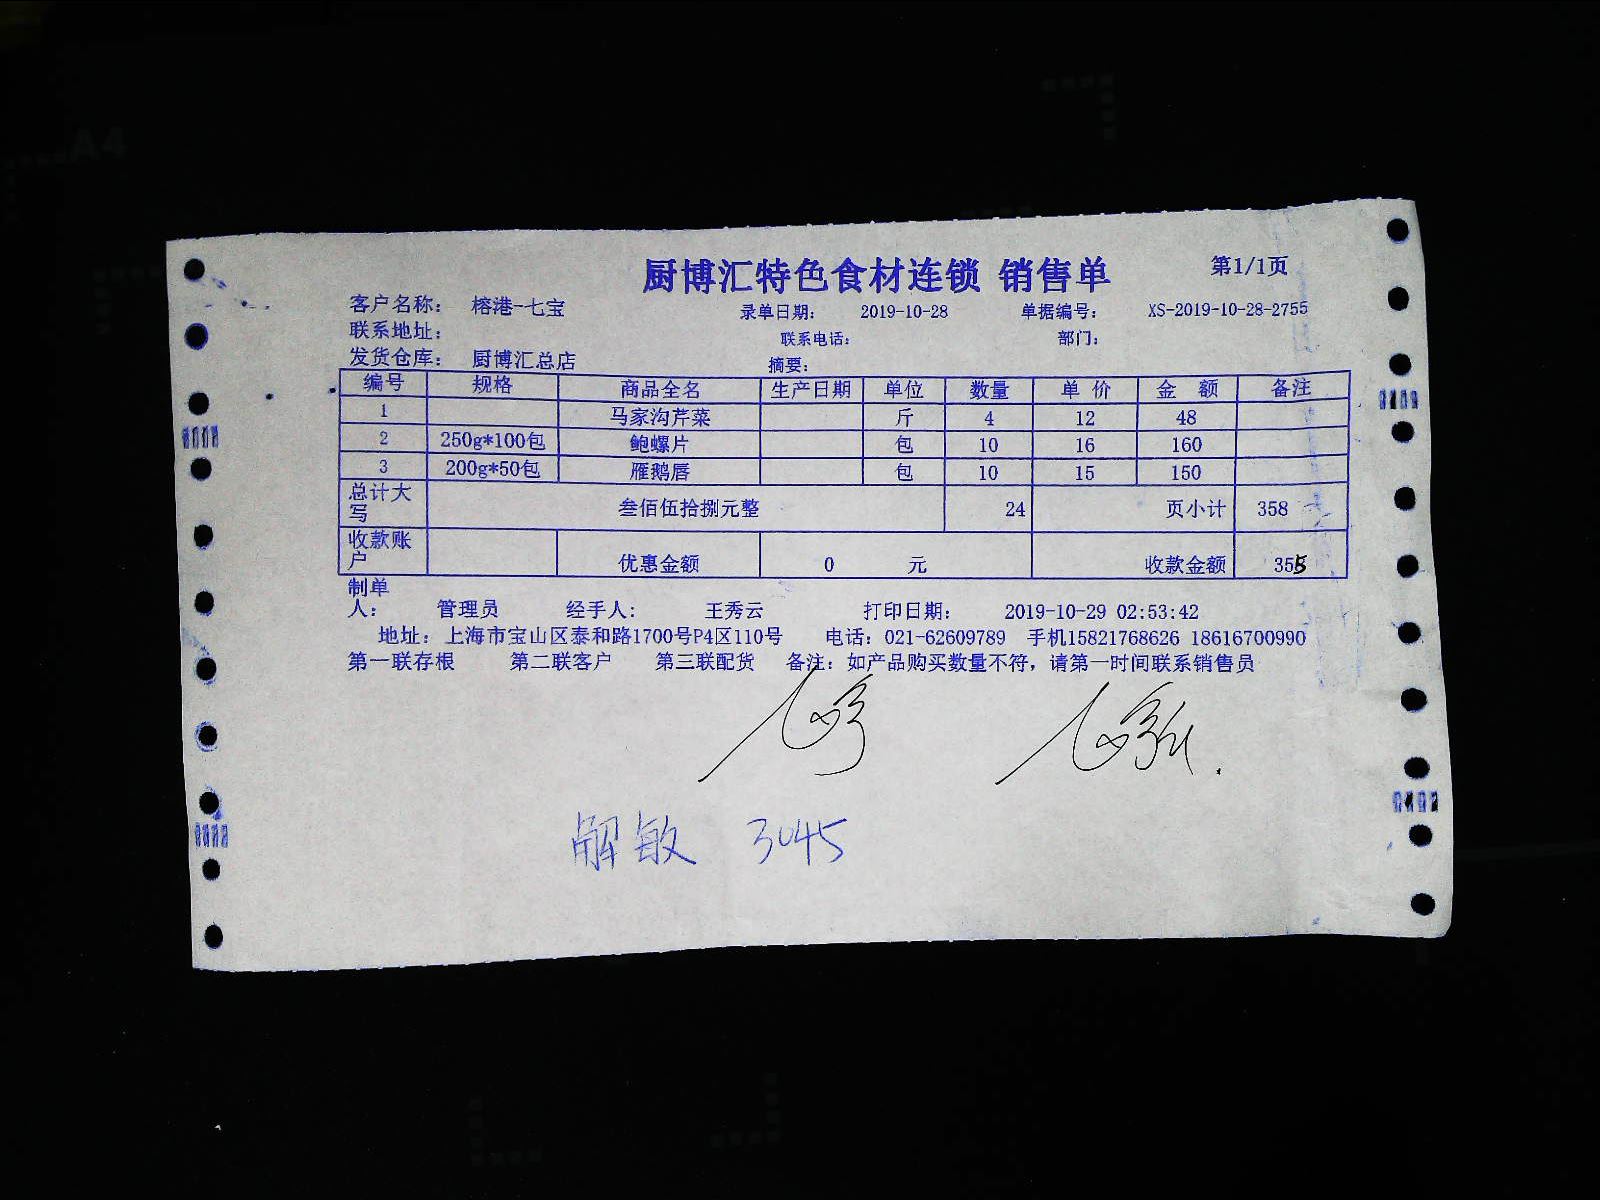 厨博汇特色食材连锁 销售单 第1/1页
客户名称： 榕港-七宝 录单日期： 2019-10-28 单据编号： XS-2019-10-28-2755
联系地址： 联系电话： 部门：
发货仓库： 厨博汇总店 摘要：
编号 规格 商品全名 生产日期 单位 数量 单 价 金 额 备注
1 马家沟芹菜 斤 4 12 48
2 250g*100包 鲍螺片 包 10 16 160
3 200g*50包 雁鹅唇 包 10 15 150
总计大写 叁佰伍拾捌元整 24 页小计 358
收款账户 优惠金额 0 元 收款金额 358
制单人： 管理员 经手人： 王秀云 打印日期： 2019-10-29 02:53:42
地址：上海市宝山区泰和路1700号P4区110号 电话：021-62609789 手机15821768626 18616700990
第一联存根 第二联客户 第三联配货 备注：如产品购买数量不符，请第一时间联系销售员
解敏 3045